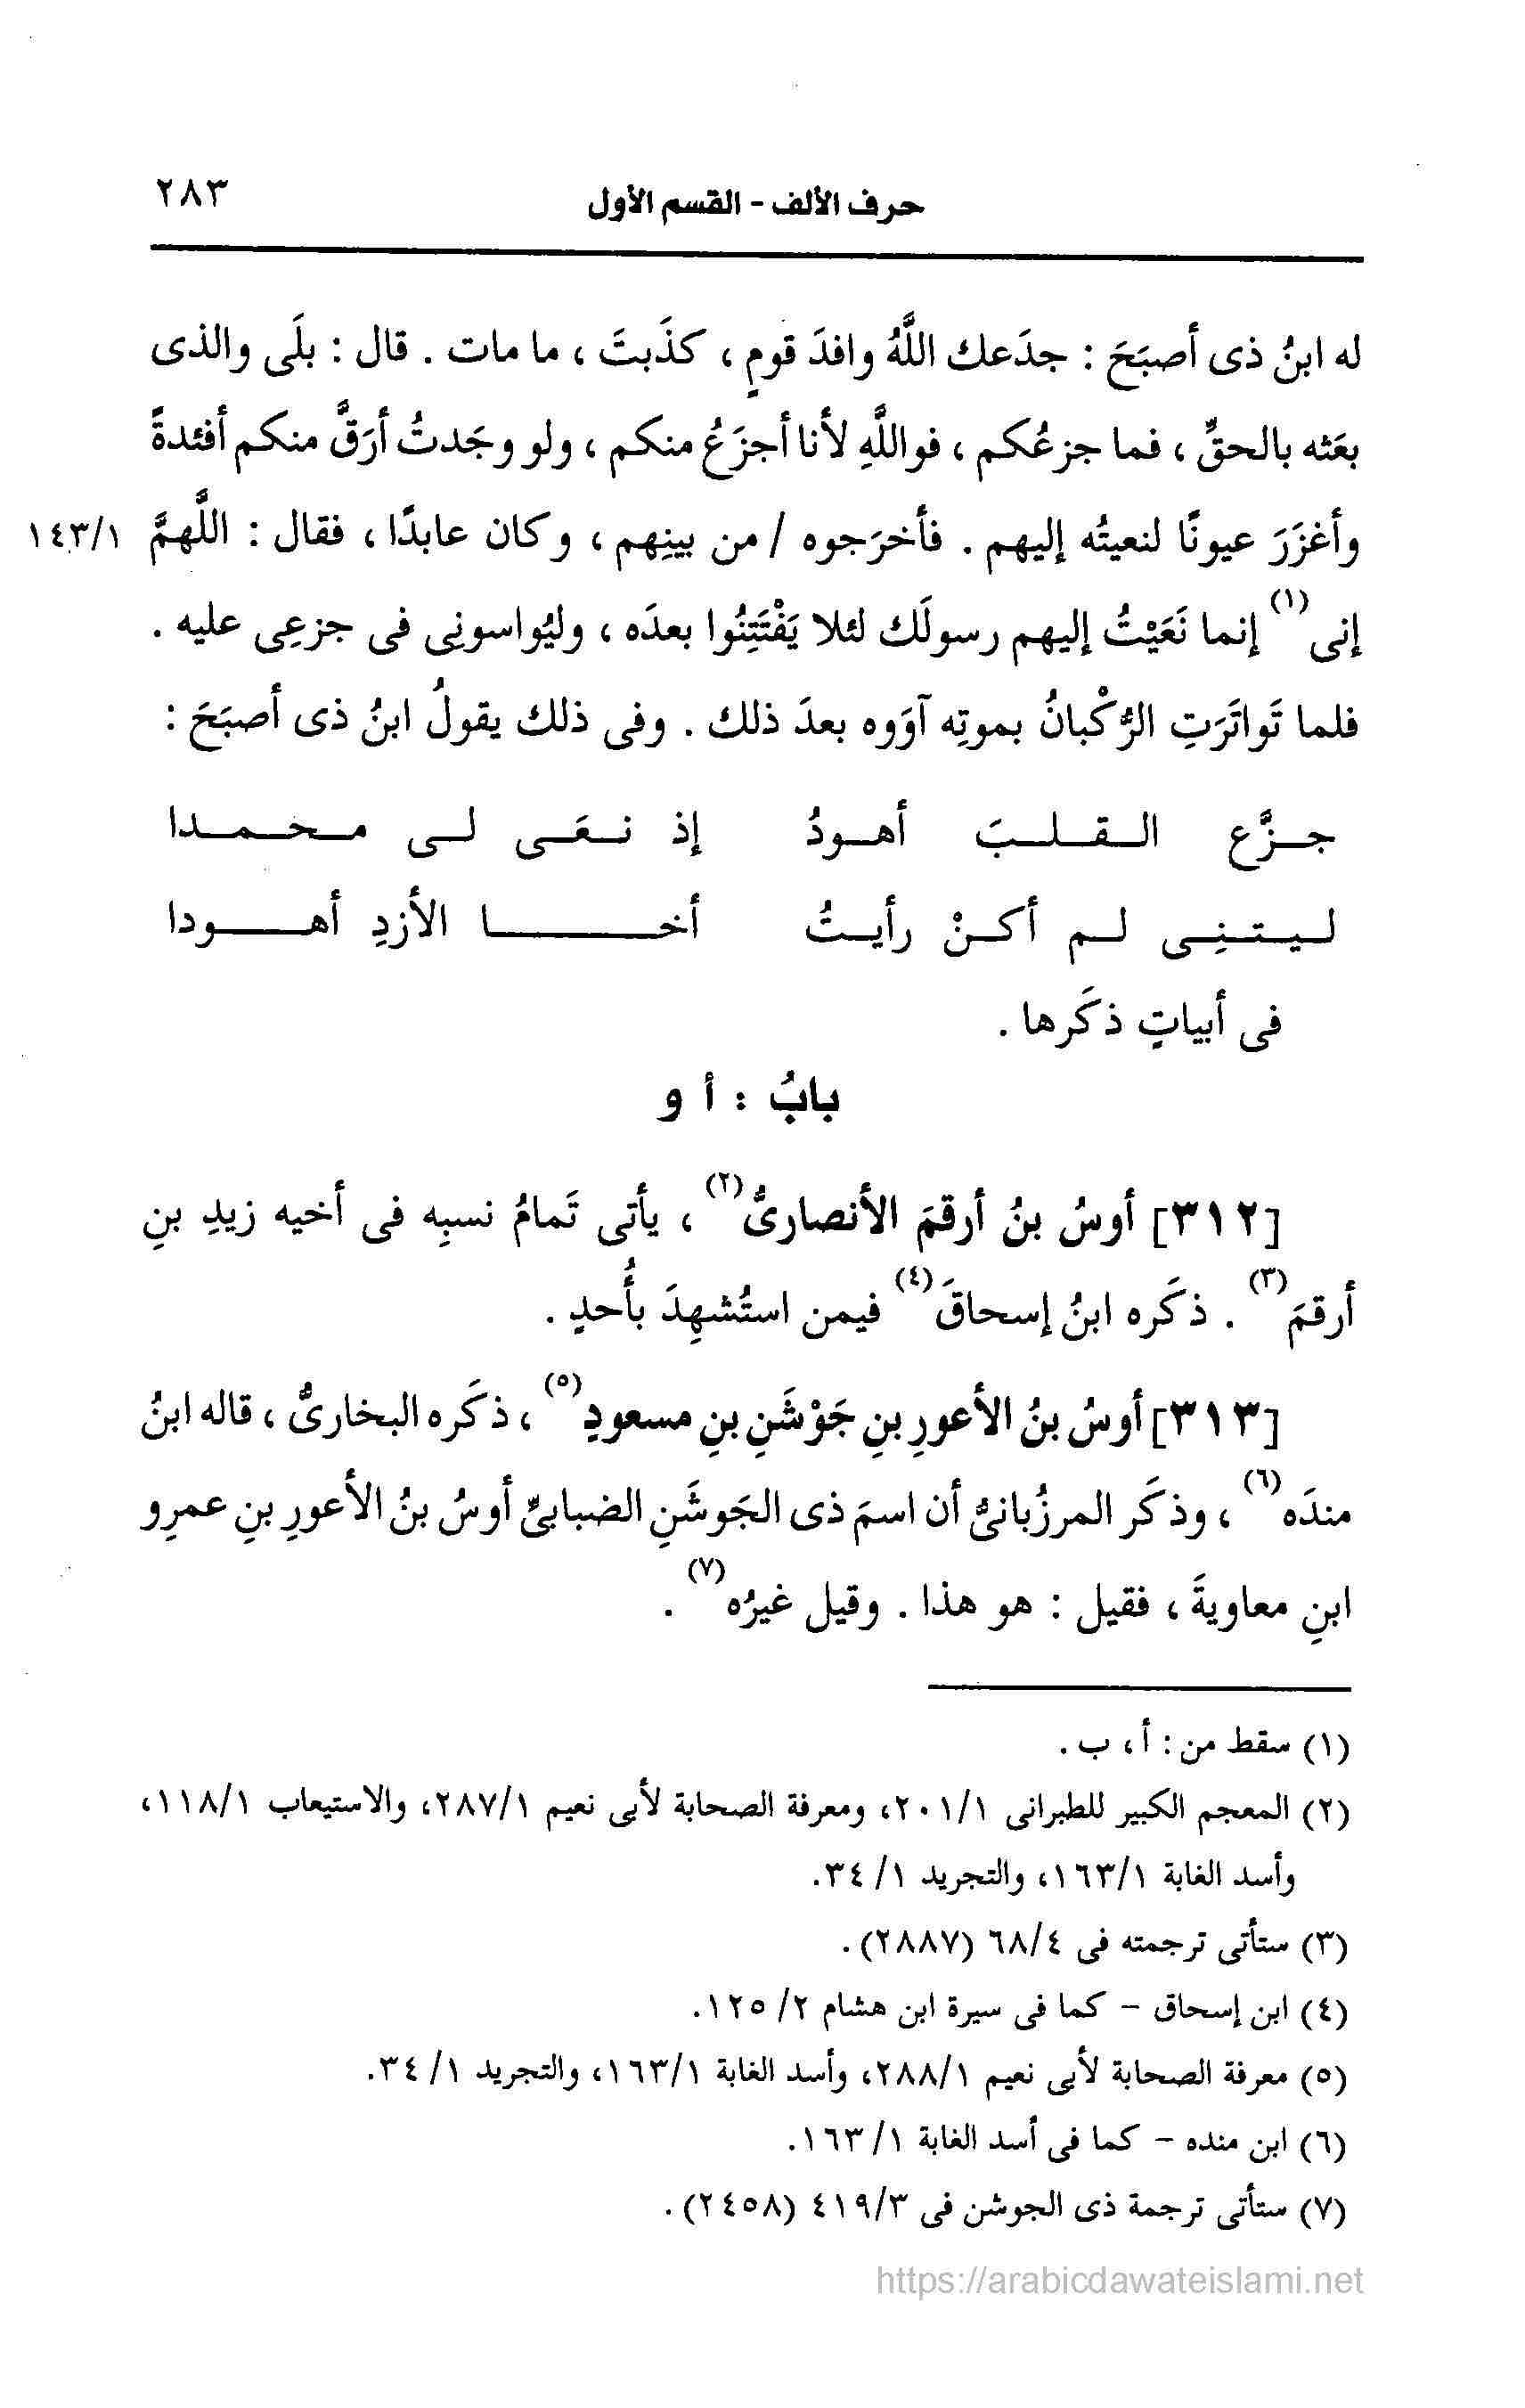 حرف الألف - القسم الأول ٢٨٣
له ابنُ ذى أصبَحَ : جدَعك اللَّهُ وافدَ قومٍ ، كذَبتَ ، ما مات . قال : بلَى والذى
بعَثه بالحقِّ ، فما جزعُكم ، فواللَّهِ لأنا أجزَعُ منكم ، ولو وجَدتُ أرَقَّ منكم أفئدةً
وأغزَرَ عيونًا لنعيتُه إليهم . فأخرَجوه / من بينِهم ، وكان عابدًا ، فقال : اللَّهمَّ ١٤٣/١
إنى(١) إنما نَعَيْتُ إليهم رسولَك لئلا يَفْتَتِنُوا بعدَه ، وليُواسونِى فى جزعِى عليه .
فلما تَواتَرَتِ الرُّكْبانُ بموتِه آوَوه بعدَ ذلك . وفى ذلك يقولُ ابنُ ذى أصبَحَ :
جـزَّع القـلـبَ أهـودُ إذ نـعَـى لـى مـحـمـدا
لـيـتـنِـى لـم أكـنْ رأيـتُ أخـا الأزدِ أهـودا
فى أبياتٍ ذكَرها .
بابُ : أ و
[٣١٢] أوسُ بنُ أرقمَ الأنصارىُّ(٢) ، يأتى تَمامُ نسبِه فى أخيه زيدِ بنِ
أرقمَ(٣) . ذكَره ابنُ إسحاقَ(٤) فيمن استُشهِدَ بأُحدٍ .
[٣١٣] أوسُ بنُ الأعورِ بنِ جَوْشَنِ بنِ مسعودٍ(٥) ، ذكَره البخارىُّ ، قاله ابنُ
مندَه(٦) ، وذكَر المرزُبانىُّ أن اسمَ ذى الجَوشَنِ الضبابىِّ أوسُ بنُ الأعورِ بنِ عمرِو
ابنِ معاويةَ ، فقيل : هو هذا . وقيل غيرُه(٧) .
(١) سقط من : أ ، ب .
(٢) المعجم الكبير للطبرانى ٢٠١/١، ومعرفة الصحابة لأبى نعيم ٢٨٧/١، والاستيعاب ١١٨/١،
وأسد الغابة ١٦٣/١، والتجريد ١/ ٣٤.
(٣) ستأتى ترجمته فى ٦٨/٤ (٢٨٨٧) .
(٤) ابن إسحاق - كما فى سيرة ابن هشام ٢/ ١٢٥.
(٥) معرفة الصحابة لأبى نعيم ٢٨٨/١، وأسد الغابة ١٦٣/١، والتجريد ١/ ٣٤.
(٦) ابن منده - كما فى أسد الغابة ١/ ١٦٣.
(٧) ستأتى ترجمة ذى الجوشن فى ٤١٩/٣ (٢٤٥٨) .
https://arabicdawateislami.net